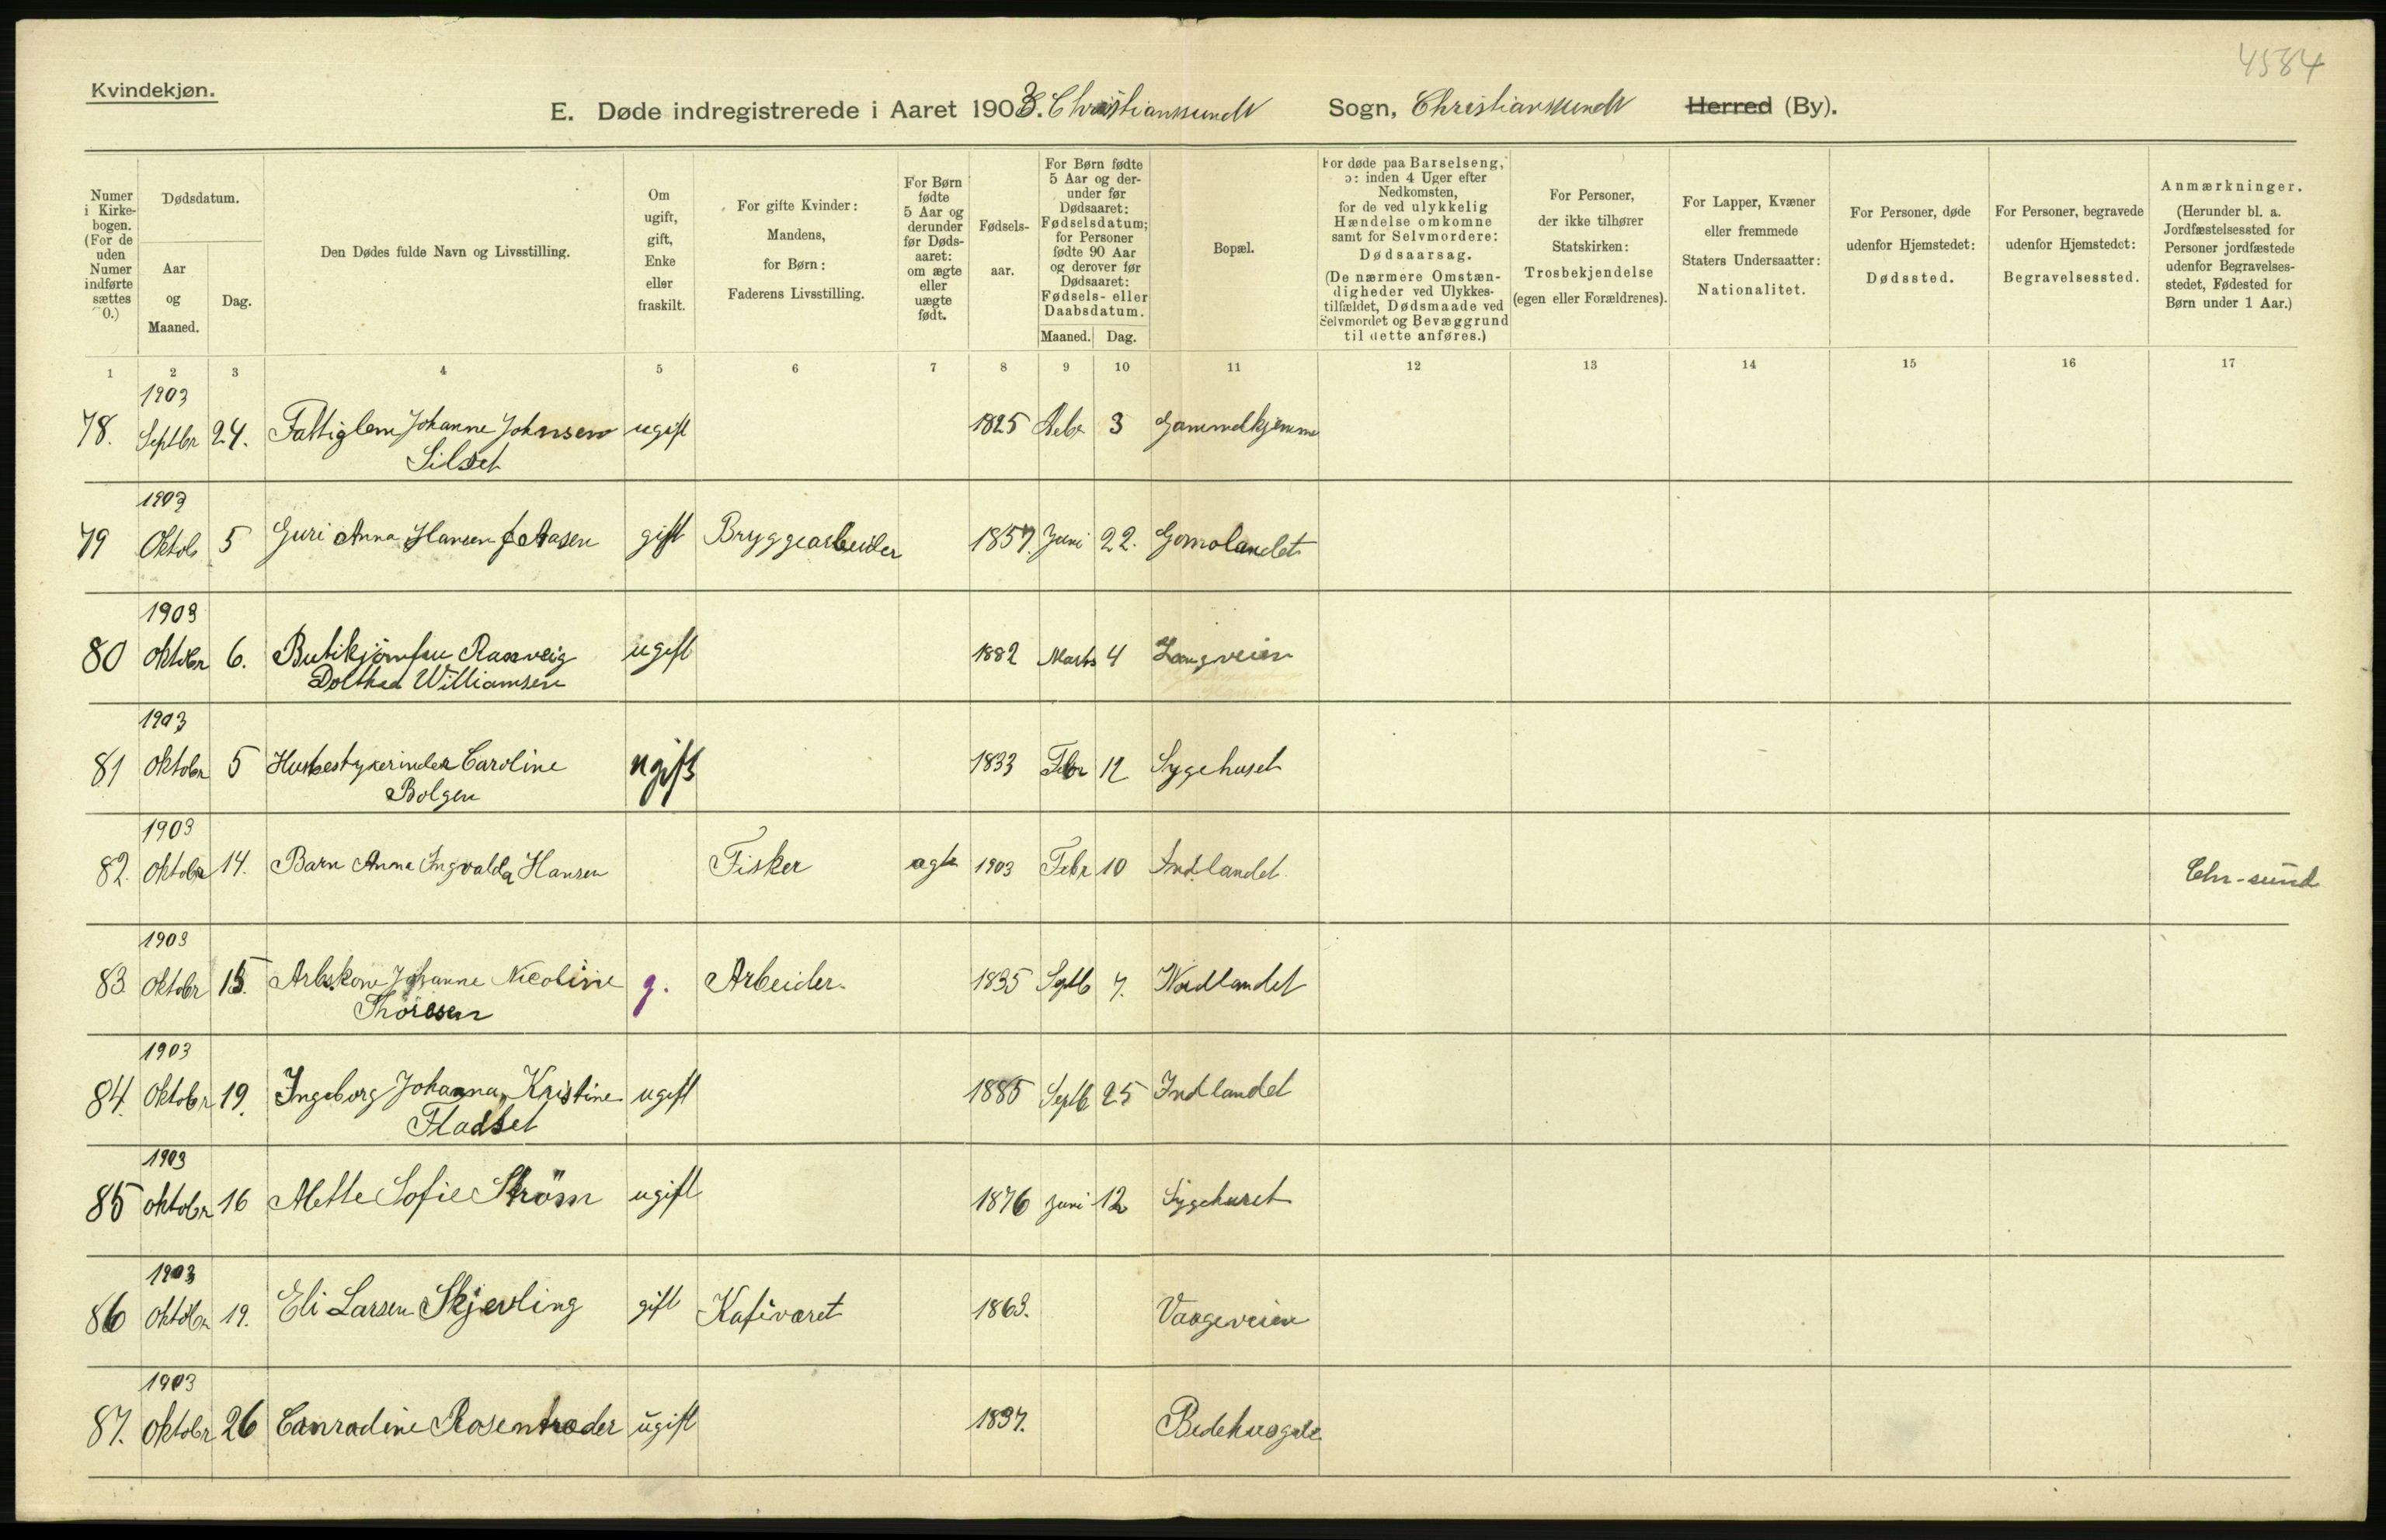 4584
Kvindekjøn.
E. Døde indregistrerede i Aaret 1903. Christianssund Sogn, Christianssund Herred (By).
Numer i Kirkebogen. (For de uden Numer indførte sættes 0.)
Dødsdatum.
Aar og Maaned.
Dag.
Den Dødes fulde Navn og Livsstilling.
Om ugift, gift, Enke eller fraskilt.
For gifte Kvinder: Mandens, for Børn: Faderens Livsstilling.
For Børn fødte 5 Aar og derunder før Dødsaaret: om ægte eller uægte født.
Fødselsaar.
For Børn fødte 5 Aar og derunder før Dødsaaret: Fødselsdatum; for Personer fødte 90 Aar og derover før Dødsaaret: Fødsels- eller Daabsdatum.
Maaned. Dag.
Bopæl.
For døde paa Barselseng, ɔ: inden 4 Uger efter Nedkomsten, for de ved ulykkelig Hændelse omkomne samt for Selvmordere: Dødsaarsag. (De nærmere Omstændigheder ved Ulykkestilfældet, Dødsmaade ved Selvmordet og Bevæggrund til dette anføres.)
For Personer, der ikke tilhører Statskirken: Trosbekjendelse (egen eller Forældrenes).
For Lapper, Kvæner eller fremmede Staters Undersaatter: Nationalitet.
For Personer, døde udenfor Hjemstedet: Dødssted.
For Personer, begravede udenfor Hjemstedet: Begravelsessted.
Anmærkninger. (Herunder bl. a. Jordfæstelsessted for Personer jordfæstede udenfor Begravelsesstedet, Fødested for Børn under 1 Aar.)
1 2 3 4 5 6 7 8 9 10 11 12 13 14 15 16 17
1903
78. Septbr 24. Fattiglem Johanne Johnsen ugift 1825 3
Silset
1903
79 Oktob 5 Guri Anna Hansen f Aasen gift Bryggearbeider 1857. Juni 22. Gomolandet
1903
80 Oktobr 6. Butikjomfru Ragnveig ugift 1882 Marts 4 Langveien
Williamsen
1903
81 Oktobr 5 Husbestyrerinde Caroline ugift 1833 Febr 12 Sygehuset
Bolgen
1903
82. Oktobr 14. Barn Anna Ingvalda Hansen Fisker ægte 1903 Febr 10 Indlandet Chr-sund
1903
83. Oktobr 15. Arbskone Johanne Nicoline g. Arbeider 1835 Septb 7. Nordlandet
Thoresen
1903
84. Oktobr 19. Ingeborg Johanna Kristine ugift 1885 Septb 25 Indlandet
Fladset
1903
85 Oktobr 16 Mette Sofie Strøm ugift 1876 Juni 12 Sygehuset
1903
86 Oktobr 19. Eli Larsen Skjevling gift Kafévært 1863. Vaageveien
1903
87. Oktobr 26 Conradine Rosentræder ugift 1837. Bedehusgate